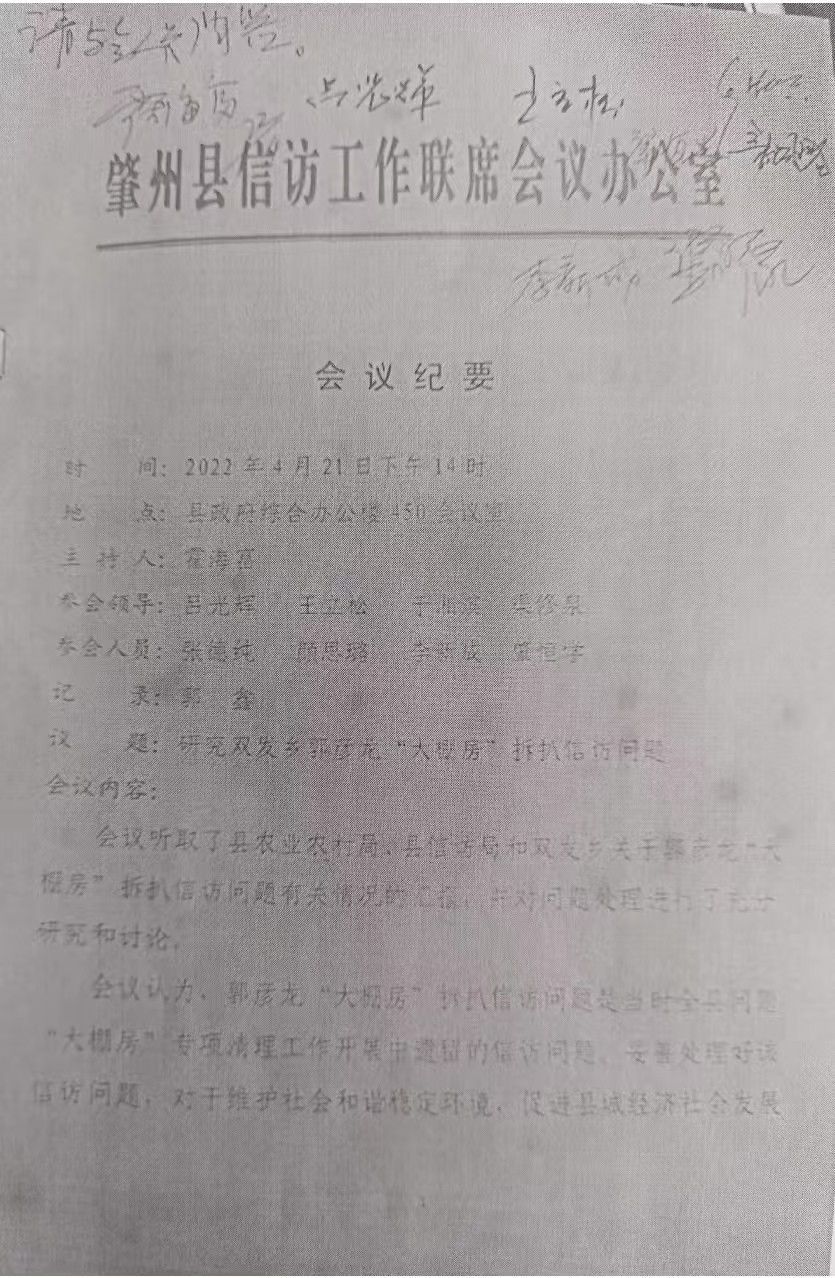 吕光辉 王立松
肇州县信访工作联席会议办公室
李新成
会议纪要
时 间：2022年4月21日下午14时
地 点：县政府综合办公楼450会议室
主 持 人：霍海富
参会领导：吕光辉 王立松 于湘滨 渠修泉
参会人员：张德纯 顾思璐 李新成 肇恒学
记 录：郭 鑫
议 题：研究双发乡郭彦龙“大棚房”拆扒信访问题
会议内容：
会议听取了县农业农村局、县信访局和双发乡关于郭彦龙“大
棚房”拆扒信访问题有关情况的汇报，并对问题处理进行了充分
研究和讨论。
会议认为，郭彦龙“大棚房”拆扒信访问题是当时全县问题
“大棚房”专项清理工作开展中遗留的信访问题，妥善处理好该
信访问题，对于维护社会和谐稳定环境，促进县域经济社会发展
1